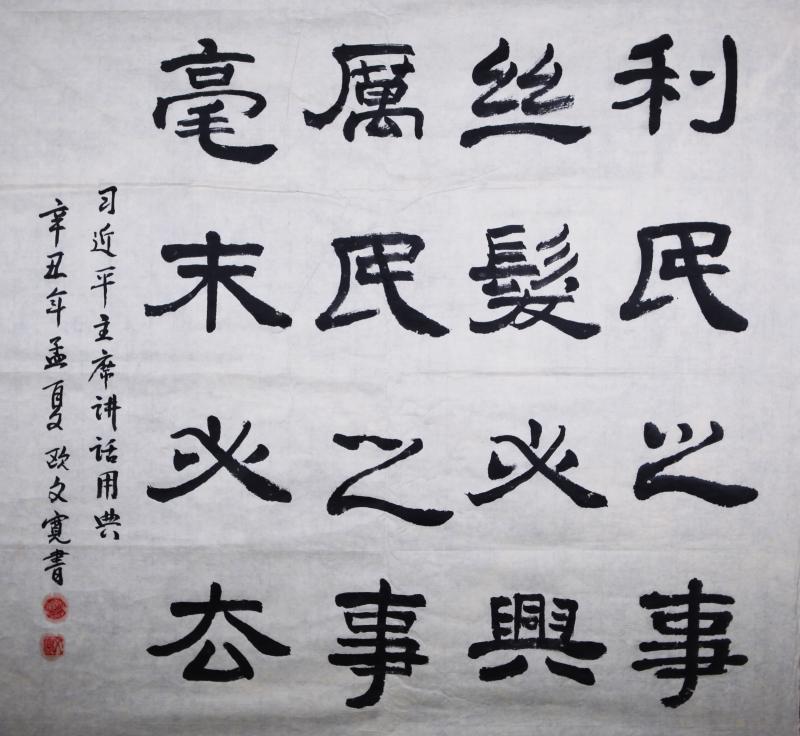 利民之事
丝髮必興
厲民之事
毫末必厺
习近平主席讲话用典
辛丑年孟夏欧文寛書